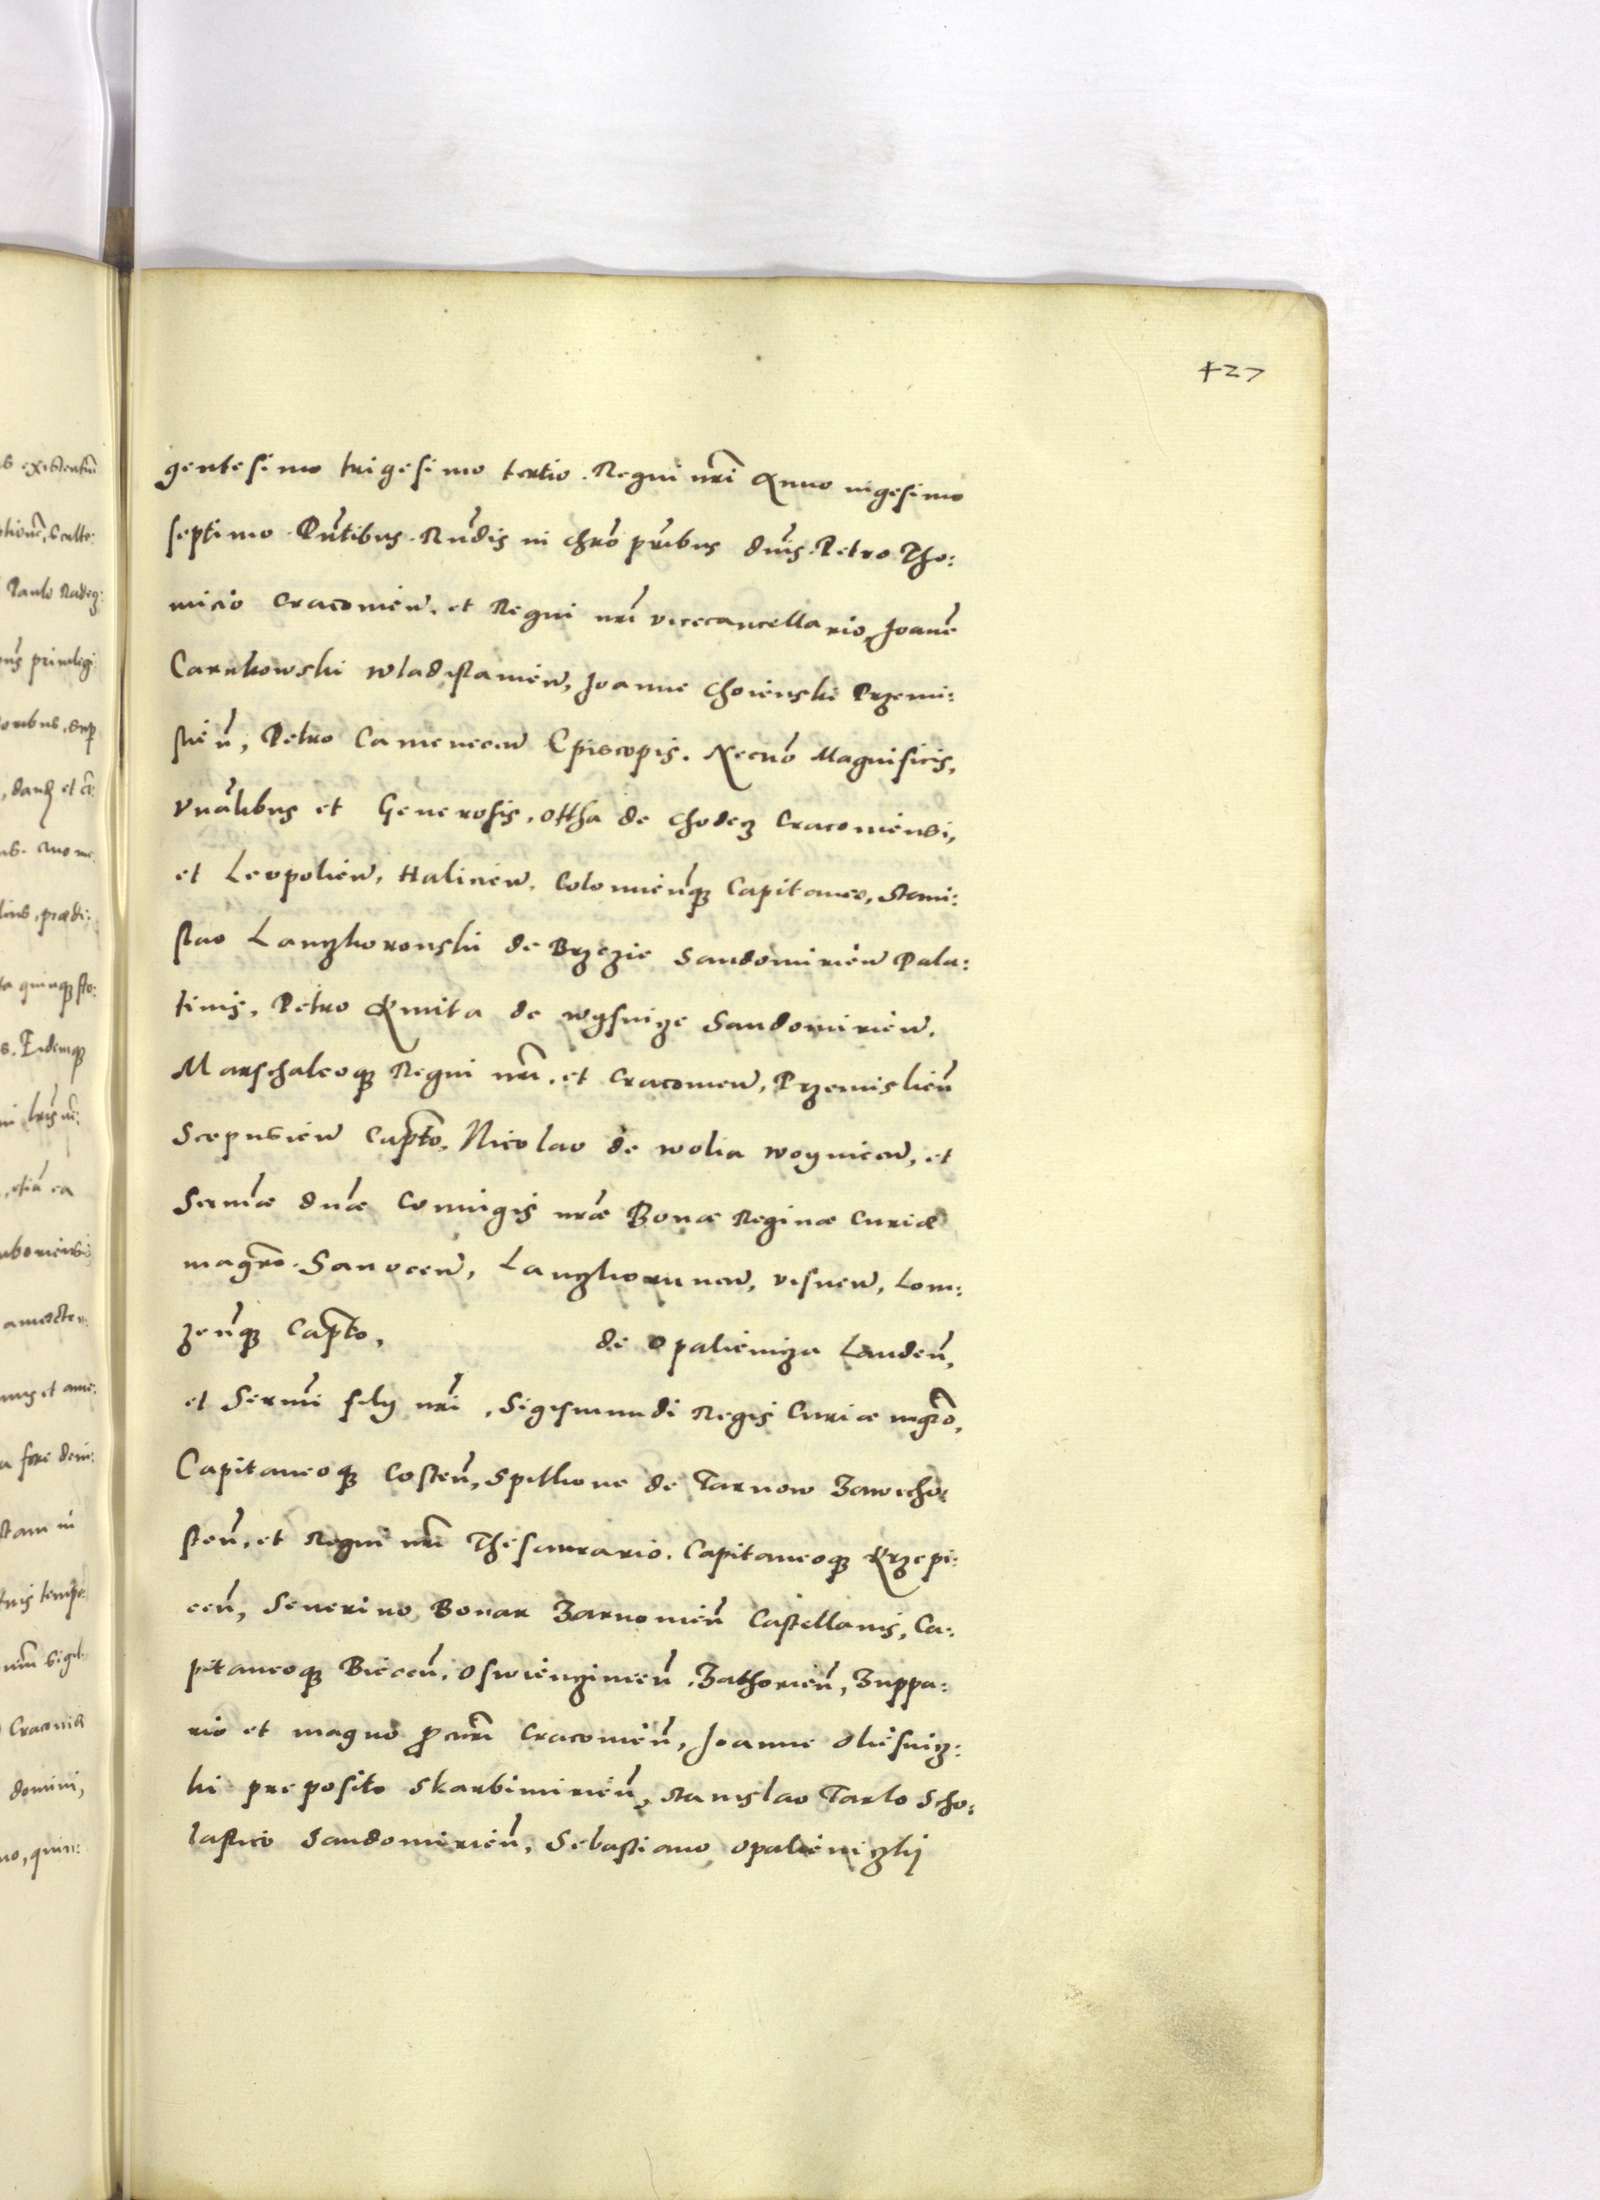 427
gentesimo trigesimo tertio. Regni nri Anno vigesimo
septimo. Pntibus. Rndis in chro pribus dnis. Petro Tho:
micio Cracovien. et Regni nri vicecancellario, Joane
Carnkowski Wladislavien, Joanne Choienski Przemi:
slien, Petro Camenecen Episcopis. Necno Magnificis,
Vnalibus et Generosis, Ottha de Chodecz Cracoviensi,
et Leopolien, Halicien, Colomienq Capitaneo, Stani:
slao Lanczkoronski de Brzezie Sandomirien Pala:
tinis, Petro Kmita de Wysnicze Sandomirien.
Marschalcoq Regni nri. et Cracovien, Przemislien
Scepusien Capto, Nicolao de Wolia Woynicen, et
Sermæ dnæ Coniugis nræ Bonæ Reginæ Curiæ
magro. Sanocen, Lanczkorunen, Visnen, Lom:
zenq Capto, de Opalienicza Landen,
et Sermi filij nri, Sigismundi Regis Curiæ mgro,
Capitaneoq Costen, Spithone de Tarnow Zawicho:
sten, et Regni nri Thesaurario. Capitaneoq Krzepi:
cen, Severino Bonar Zarnovien Castellanis, Ca:
pitaneoq Biecen, Oswienczimen, Zathorien, Zuppa:
rio et magno procuri Cracovien, Joanne Oliesnicz:
ki preposito Skarbimirien, Stanislao Tarlo Scho:
lastico Sandomirien, Sebastiano Opalieniczkij
existentium
Paulo
privilegi
Eidemq
etia ea
Craconia
domini,